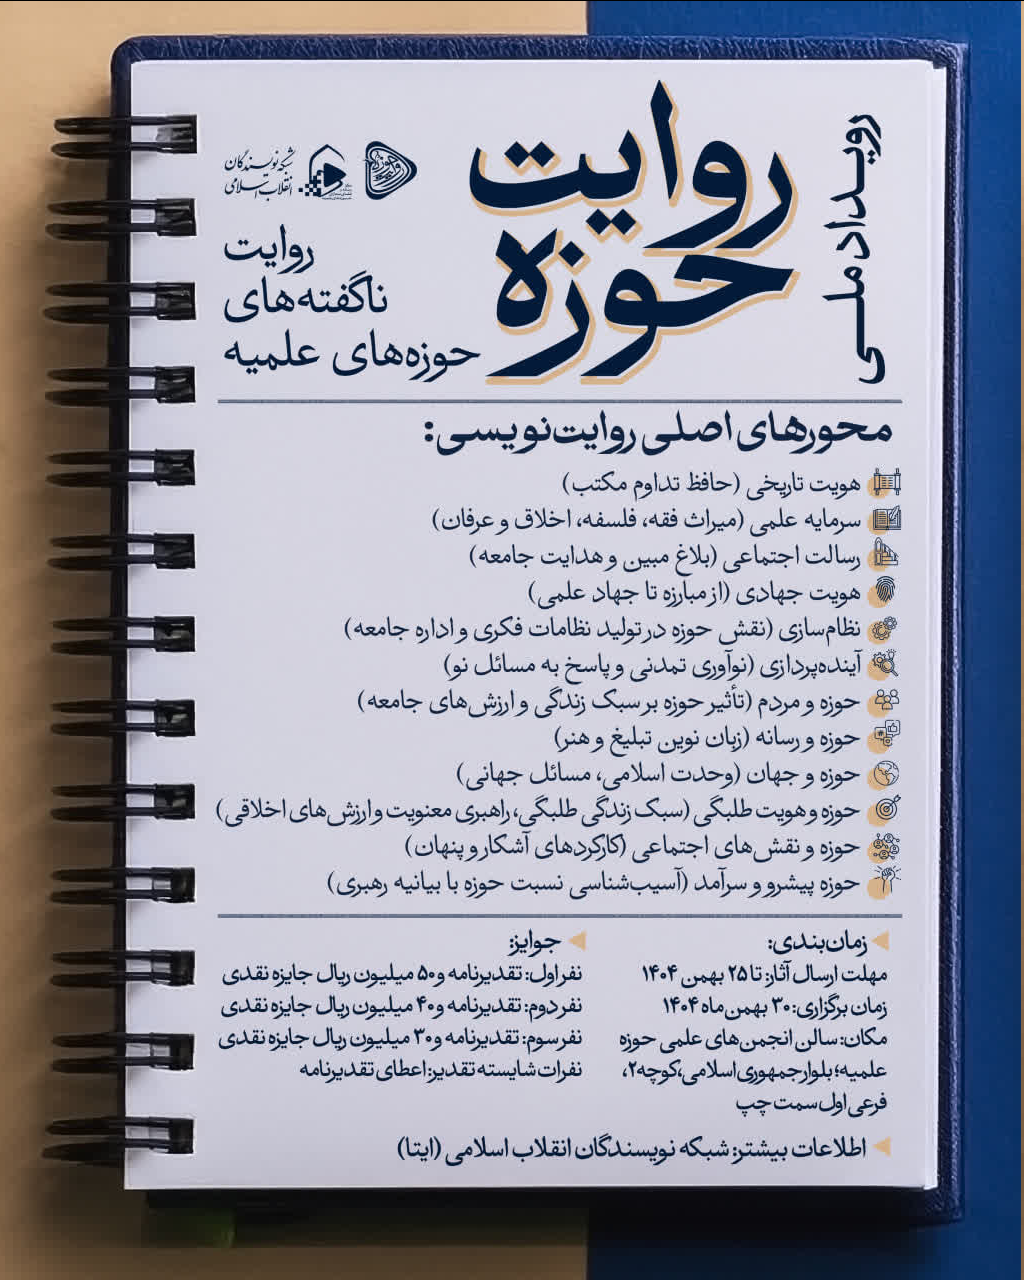 رویداد ملی
روایت
حوزه
شبکه نویسندگان
انقلاب اسلامی
روایت
ناگفته‌های
حوزه‌های علمیه
محورهای اصلی روایت‌نویسی:
هویت تاریخی (حافظ تداوم مکتب)
سرمایه علمی (میراث فقه، فلسفه، اخلاق و عرفان)
رسالت اجتماعی (بلاغ مبین و هدایت جامعه)
هویت جهادی (از مبارزه تا جهاد علمی)
نظام‌سازی (نقش حوزه در تولید نظامات فکری و اداره جامعه)
آینده‌پردازی (نوآوری تمدنی و پاسخ به مسائل نو)
حوزه و مردم (تأثیر حوزه بر سبک زندگی و ارزش‌های جامعه)
حوزه و رسانه (زبان نوین تبلیغ و هنر)
حوزه و جهان (وحدت اسلامی، مسائل جهانی)
حوزه و هویت طلبگی (سبک زندگی طلبگی، راهبری معنویت و ارزش‌های اخلاقی)
حوزه و نقش‌های اجتماعی (کارکردهای آشکار و پنهان)
حوزه پیشرو و سرآمد (آسیب‌شناسی نسبت حوزه با بیانیه رهبری)
زمان‌بندی:
مهلت ارسال آثار: تا ۲۵ بهمن ۱۴۰۴
زمان برگزاری: ۳۰ بهمن ماه ۱۴۰۴
مکان: سالن انجمن‌های علمی حوزه
علمیه؛ بلوار جمهوری اسلامی، کوچه ۲،
فرعی اول سمت چپ
جوایز:
نفر اول: تقدیرنامه و ۵۰ میلیون ریال جایزه نقدی
نفر دوم: تقدیرنامه و ۴۰ میلیون ریال جایزه نقدی
نفر سوم: تقدیرنامه و ۳۰ میلیون ریال جایزه نقدی
نفرات شایسته تقدیر: اعطای تقدیرنامه
اطلاعات بیشتر: شبکه نویسندگان انقلاب اسلامی (ایتا)